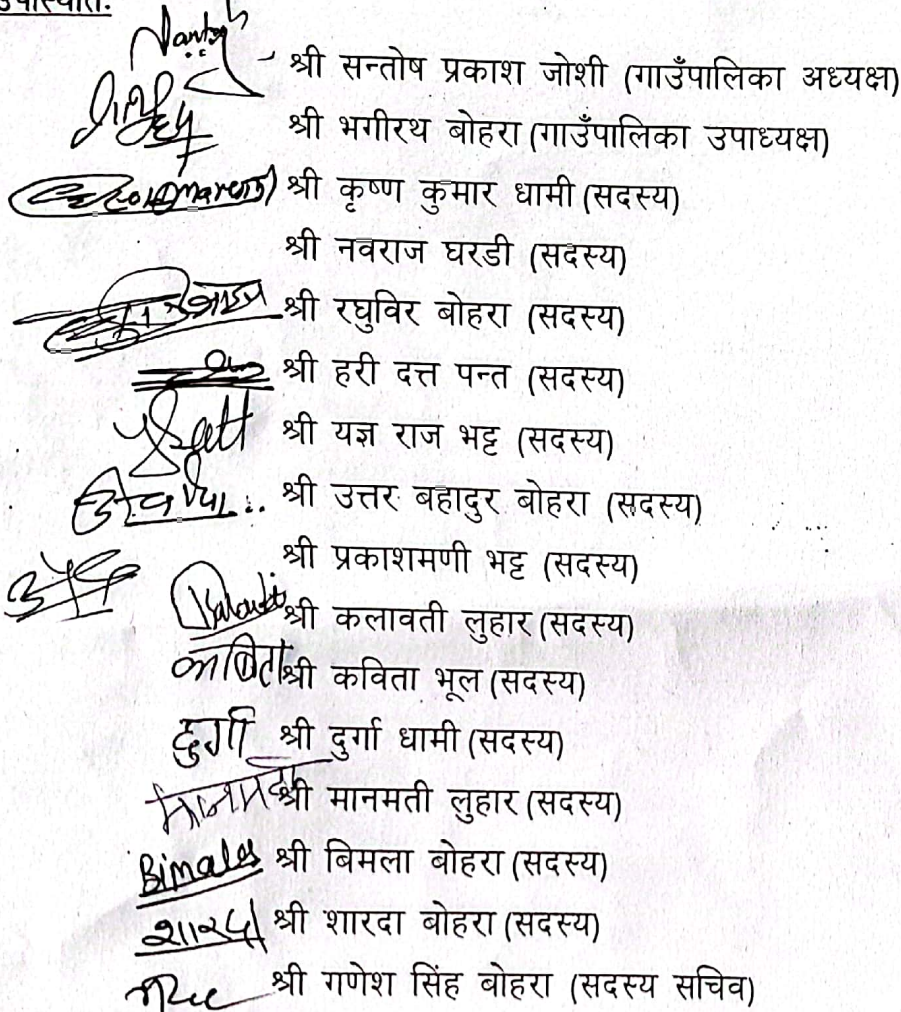 उपस्थितिः
श्री सन्तोष प्रकाश जोशी (गाउँपालिका अध्यक्ष)
श्री भगीरथ बोहरा (गाउँपालिका उपाध्यक्ष)
श्री कृष्ण कुमार धामी (सदस्य)
श्री नवराज घरडी (सदस्य)
श्री रघुविर बोहरा (सदस्य)
श्री हरी दत्त पन्त (सदस्य)
श्री यज्ञ राज भट्ट (सदस्य)
श्री उत्तर बहादुर बोहरा (सदस्य)
श्री प्रकाशमणी भट्ट (सदस्य)
श्री कलावती लुहार (सदस्य)
कबिता श्री कविता भूल (सदस्य)
दुर्गा श्री दुर्गा धामी (सदस्य)
श्री मानमती लुहार (सदस्य)
Bimala श्री बिमला बोहरा (सदस्य)
शारदा श्री शारदा बोहरा (सदस्य)
श्री गणेश सिंह बोहरा (सदस्य सचिव)